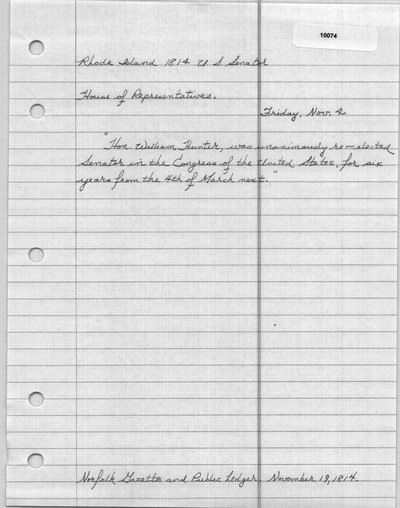 10074
Rhode Island 1814 U S Senator
House of Representatives.
Friday, Nov. 4
"Hon. William Hunter, was unanimously re-elected
Senator in the Congress of the United States, for six
years from the 4th of March next."
Norfolk Gazette and Public Ledger. November 19, 1814.